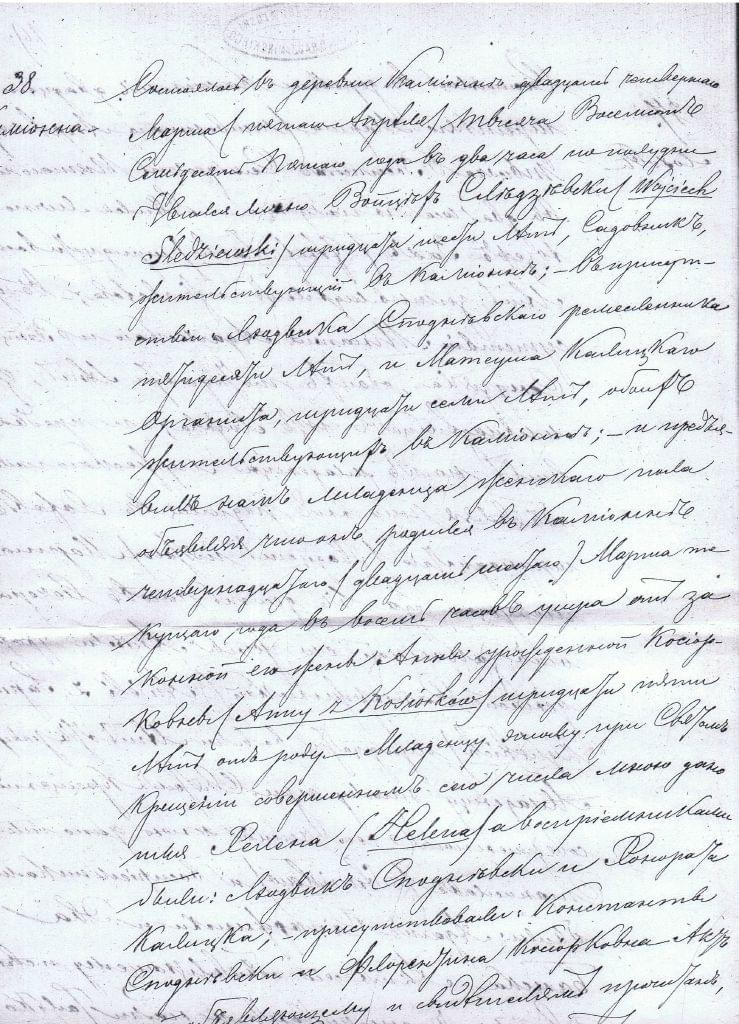 38.
Состоялось въ деревни Каміонкѣ двадцать четвертаго
Марта (пятаго Апрѣля) тысяча Восемсотъ
Семдесятъ Пятаго года въ два часа по полудни
Явился лично Войцѣхъ Слѣдзѣвски (Wojciech
Śledziewski) тридцати шести лѣтъ, Садовникъ,
жительствующій въ Каміонкѣ; – въ присут-
ствіи Людвика Споднѣвскаго ремесленника
пятидесяти лѣтъ, и Матеуша Калицкаго
Органиста, тридцати семи лѣтъ, обоихъ
жительствующихъ въ Каміонкѣ; – и предъя-
вилъ намъ младенца женскаго пола
объявляя что онъ родился въ Каміонкѣ
четырнадцатаго (двадцать шестаго) Марта те
кущаго года въ восемь часовъ утра отъ за
конной его жены Анны урожденной Косіор-
ковны (Anny z Kosiorków) тридцати пяти
лѣтъ отъ роду – Младенцу этому при Святомъ
крещеніи совершенномъ сего числа мною дано
имя Хелена (Helena) а воспріемниками
были: Людвикъ Споднѣвски и Хонората
Калицка; – присутствовали: Константы
Споднѣвски и Флорентина Косіорковна Актъ
объявляющему и свидѣтелямъ прочитанъ,